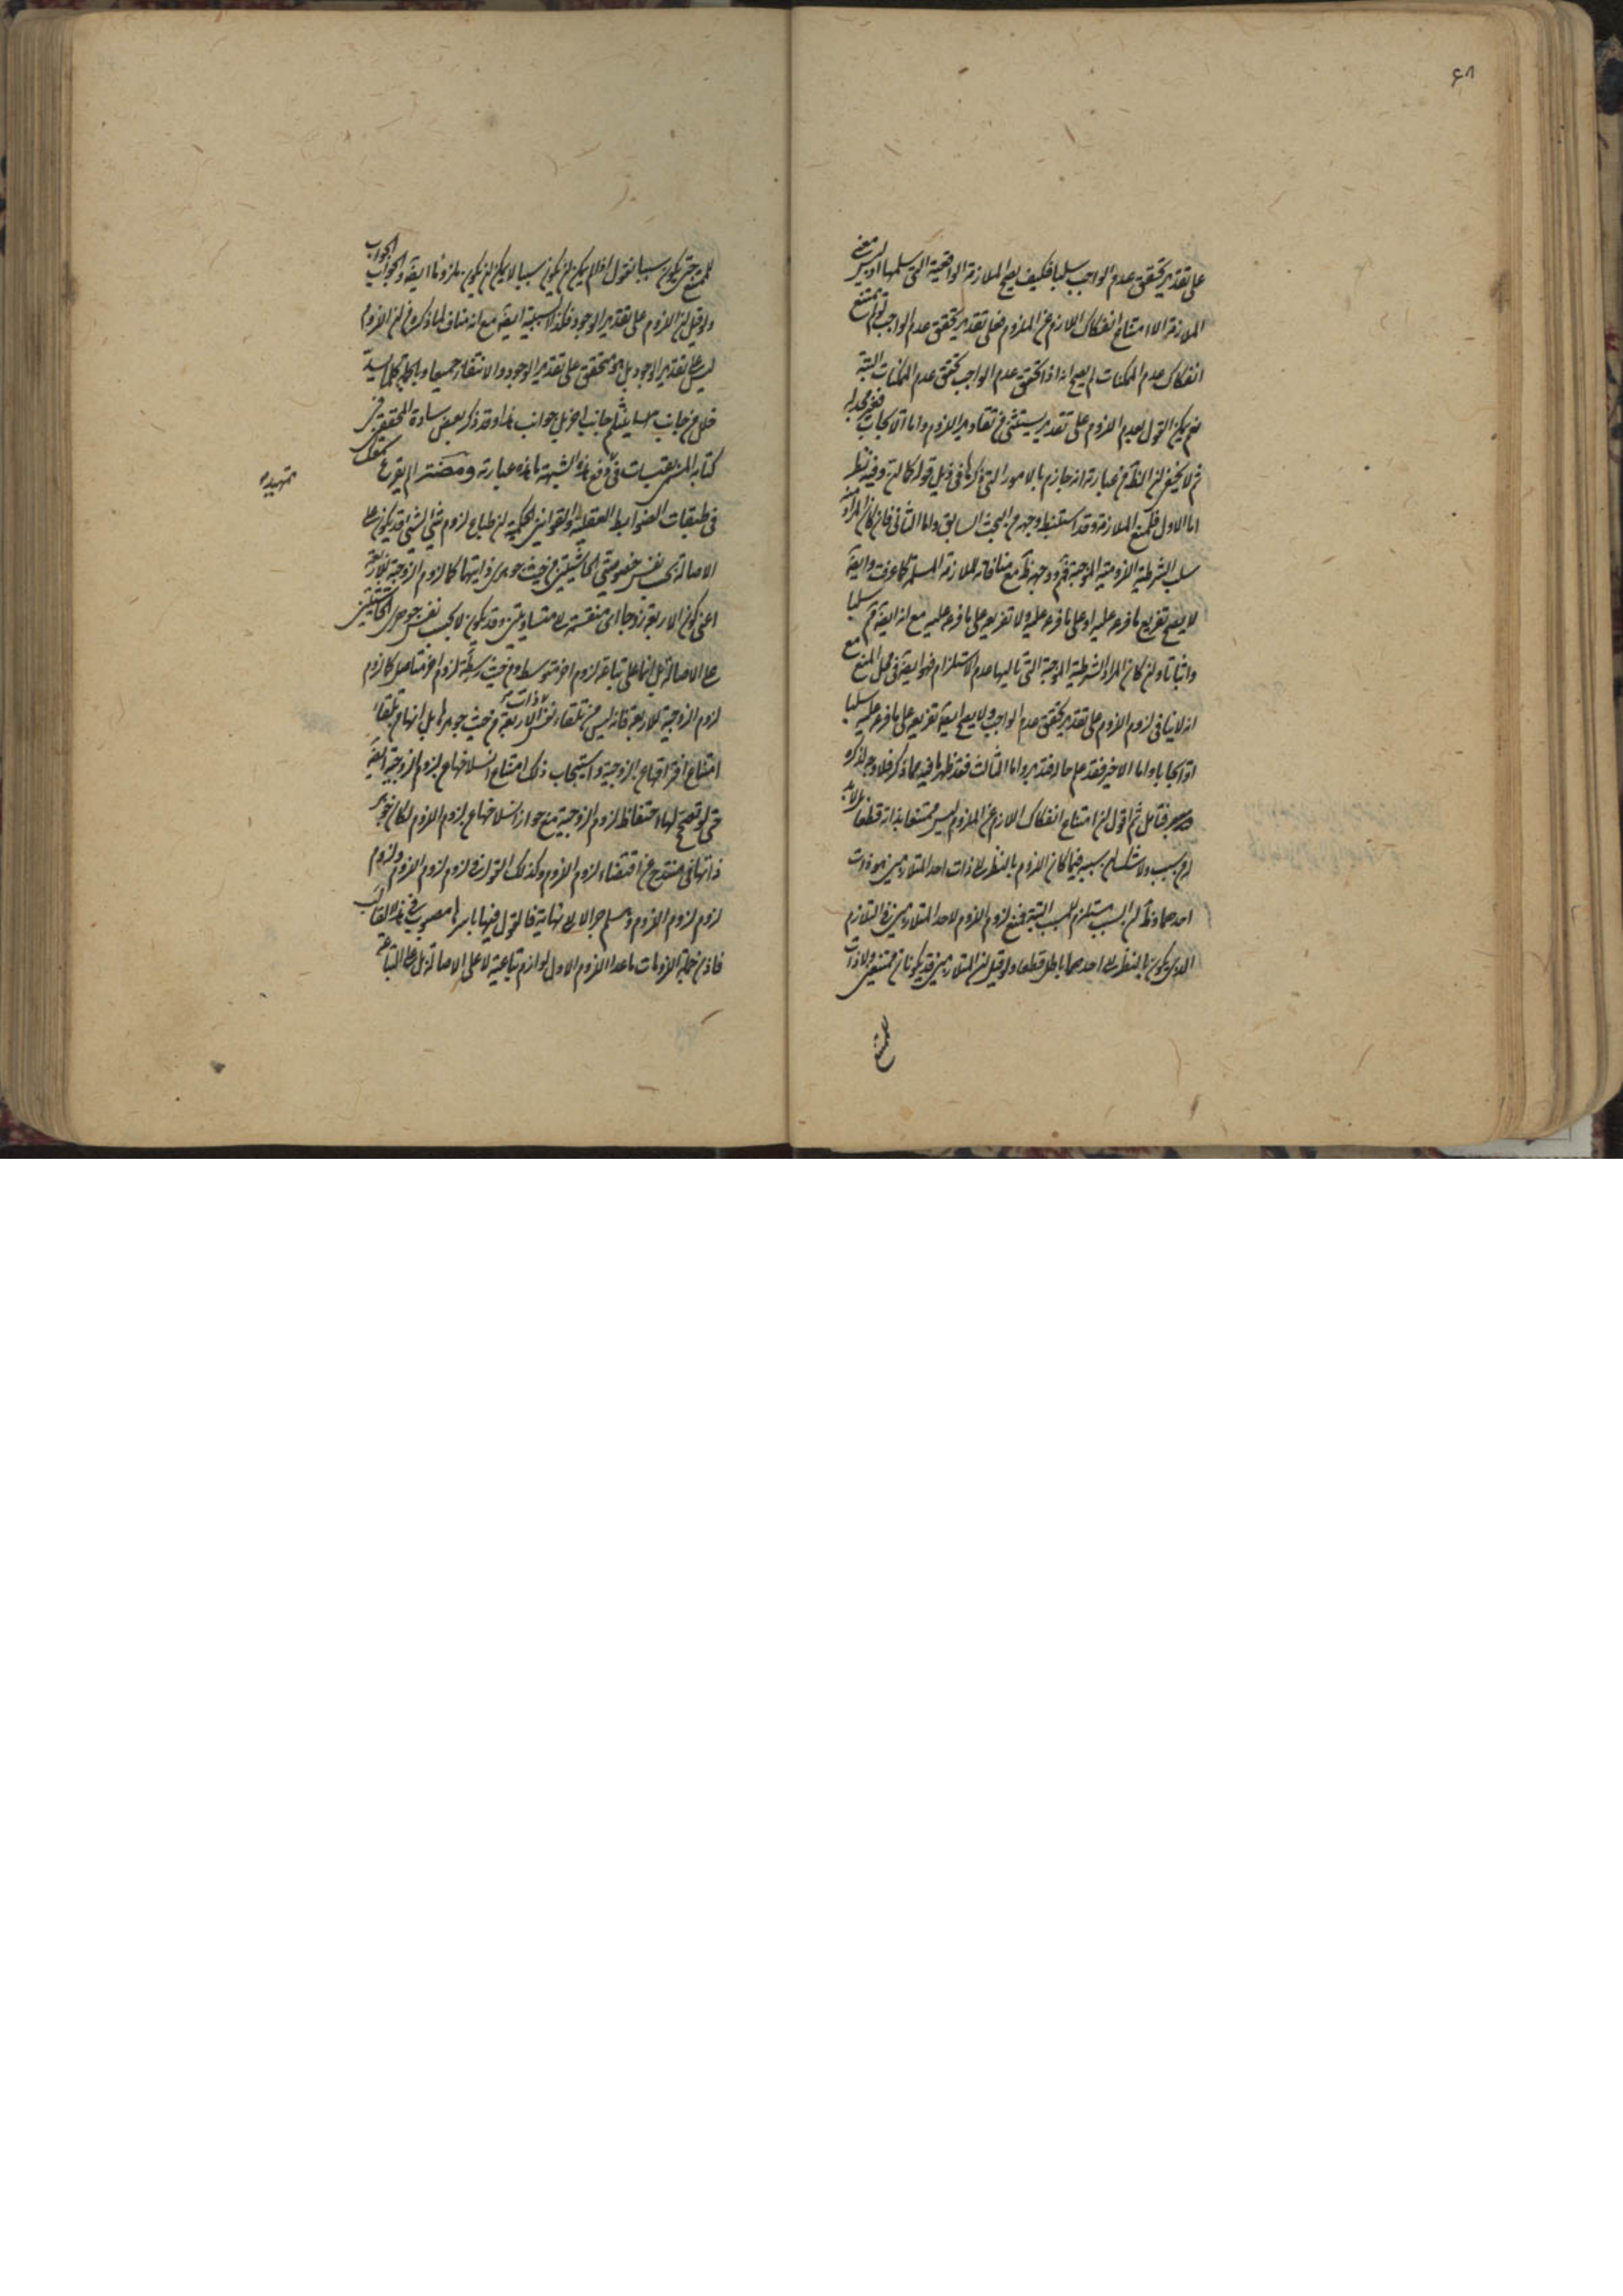 ۶۸
على تقدير تحقق عدم الواجب سلبا فكيف يصح الملازمة الواقعية التى سلمها اذ ليس معنى
الملازمة الا امتناع انفكاك اللازم عن الملزوم فعلى تقدير تحقق عدم الواجب لو لم يمتنع
انفكاك عدم الممكنات لم يصح انه اذا تحقق عدم الواجب تحقق عدم الممكنات البتة
نعم يمكن القول بعدم اللزوم على تقدير يستثنى من تقادير اللزوم واما الايجاب
ثم لا يخفى ان الظ من عبارته انه جازم بالامور التى ذكرها فى ذيل قوله كالة وفيه نظر
اما الاول فلمنع الملازمة وقد استنبط وجهه من البحث السابق واما الثانى فان كان المراد منه
سلب الشرطية اللزومية الموجبة فم ووجهه ظ مع منافاته للملازمة المسلمة كما عرفت وايضا
لا يصح تفريع ما فرع عليه او على ما فرع عليه ولا تفريعه على ما فرع عليه مع انه ايضا م سلبا
واثباتا وان كان المراد الشرطية الموجبة التى تاليها عدم الاستلزام فهو ايضا فى محل المنع مع
انه لا ينافى لزوم اللزوم على تقدير تحقق عدم الواجب ولا يصح ايضا تفريعه على ما فرع عليه سلبا
او ايجابا واما الاخير فقد علم حاله فتدبر واما الثالث فقد ظهر ما فيه مما ذكر فلا وجه لذكره
فتامل ثم اقول ان امتناع انفكاك اللازم عن الملزوم ليس ممتنعا بذاته قطعا فلابد
له من سبب ولا شك ان سببه فيما كان اللزوم بالنظر الى ذات احد المتلازمين هو ذات
احدهما وظ ان السبب مستلزم للمسبب البتة فمنع لزوم اللزوم لاحد المتلازمين فى التلازم
الذى يكون بالنظر الى احدهما باطل قطعا ولو قيل ان المتلازمين قد يكونان ممتنعين ولا ذات
للممتنع
للممتنع حتى يكون سببا نقول اذا لم يكن ان يكون سببا لا يمكن ان يكون ملزوما ايضا والجواب الجواب
ولو قيل ان اللزوم على تقدير الوجود فكذا السببية ايضا مع انه مناف لما ذكروه من ان اللزوم
ليس على تقدير الوجود بل هو متحقق على تقدير الوجود والانتفاء جميعا وبالجملة كلما سد
خلل من جانب ينثلم جانب اخر بل جوانب هذا وقد ذكر بعض سادة المحققين فى
كتابه المسمى بتقديسات فى دفع هذه الشبهة ما هذه عبارته ومضة الم يقرع سمعك
فى طبقات الضوابط العقلية والقوانين الحكمية ان طباع لزوم شئ لشئ قد يكون على
الاصالة بحسب نفس خصوصيتى الحاشيتين من حيث جوهرى ذاتيهما كما لزوم الزوجية للاربعة
اعنى كون الاربعة زوجا اى منقسمة بمتساويتين وقد يكون لا بحسب نفس جوهرى الحاشيتين
على الاصالة بل انما على تباعة لزوم اخر متوسط ومن حيث وساطة لزوم اخر متاصل كما لزوم
لزوم الزوجية للاربعة فانه ليس من تلقاء نفس ذات الاربعة من حيث جوهرها بل انها من تلقاء
امتناع افتراقها عن الزوجية واستيجاب ذلك امتناع انسلاخها عن لزوم الزوجية ايضا
حتى لو تصحح لها احتفاظ لزوم الزوجية مع جواز انسلاخها عن لزوم اللزوم لكان جوهر
ذاتها فى مندوحة عن اقتضاء لزوم اللزوم وكذلك القول فى لزوم لزوم اللزوم ولزوم
لزوم لزوم اللزوم وهلم جرا الى لا نهاية فالقول فيها باسرها مصبوب فى هذا القالب
فاذن جملة اللزومات ما عدا اللزوم الاول لوازم تباعية لا على الاصالة بل على التباعة
تمهيده